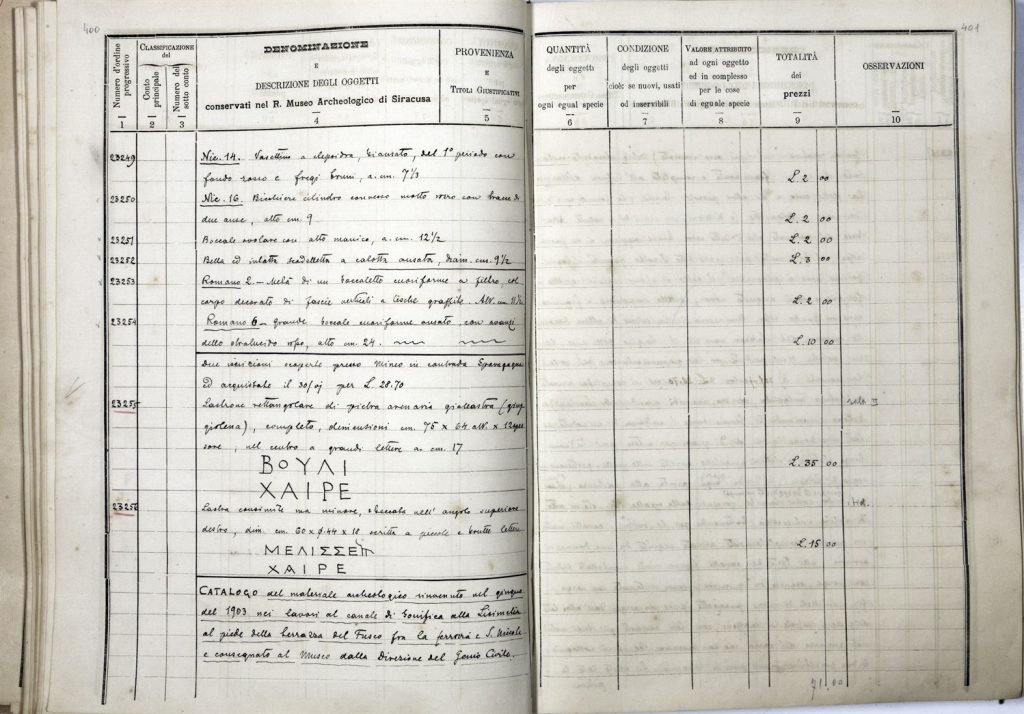 400
401
Numero d'ordine progressivo
CLASSIFICAZIONE
del
Conto principale
Numero del sotto conto
DENOMINAZIONE
E
DESCRIZIONE DEGLI OGGETTI
conservati nel R. Museo Archeologico di Siracusa
PROVENIENZA
E
TITOLI GIUSTIFICATIVI
QUANTITÀ
degli oggetti
per
ogni egual specie
CONDIZIONE
degli oggetti
cioè: se nuovi, usati
od inservibili
VALORE ATTRIBUITO
ad ogni oggetto
ed in complesso
per le cose
di eguale specie
TOTALITÀ
dei
prezzi
OSSERVAZIONI
1 2 3 4 5 6 7 8 9 10
23249 Nic. 14. Vasettino a clepsidra, biansato, del 1º periodo con
fondo rosso e fregi bruni, a. cm. 7 1/3 L. 2 00
23250 Nic. 16. Bicchiere cilindro connesso molto rozzo con tracce di
due anse, alto cm. 9 L. 2 00
23251 Boccale ovolare con alto manico, a. cm. 12 1/2 L. 2 00
23252 Bella ed intatta scodelletta a calotta ansata, diam. cm. 9 1/2 L. 3 00
23253 Romano 2. – Metà di un boccaletto cuoriforme a filtro, col
corpo decorato di fascie verticali a lische graffite. Alt. cm 11 1/2 L. 2 00
23254 Romano 6 – Grande boccale cuoriforme ansato, con avanzi
dello stralucido rosso, alto cm. 24. L. 10 00
Due iscizioni scoperte presso Mineo in contrada
ed acquistate il 30/ per L. 28.70
23255 Lastrone rettangolare di pietra arenaria giallastra (giug
giolena), completo, dimensioni cm. 75 x 64 alt. x 12 spes
sore, nel centro a grandi lettere a. cm. 17 sala II
ΒΟΥΛΙ L. 35 00
ΧΑΙΡΕ
23256 Lastra consimile ma minore, sboccata nell' angolo superiore id.
destro, dim. cm. 60 x 0.44 x 18 scritta a piccole e brutte lettere
ΜΕΛΙΣΣΕ L. 15 00
ΧΑΙΡΕ
CATALOGO del materiale archeologico rinvenuto nel giugno
del 1903 nei lavori al canale di bonifica alla Lisimelia
al piede della terrazza del Fusco fra la ferrovia e S. Nicola
e consegnato al Museo dalla Direzione del Genio Civile.
71.00